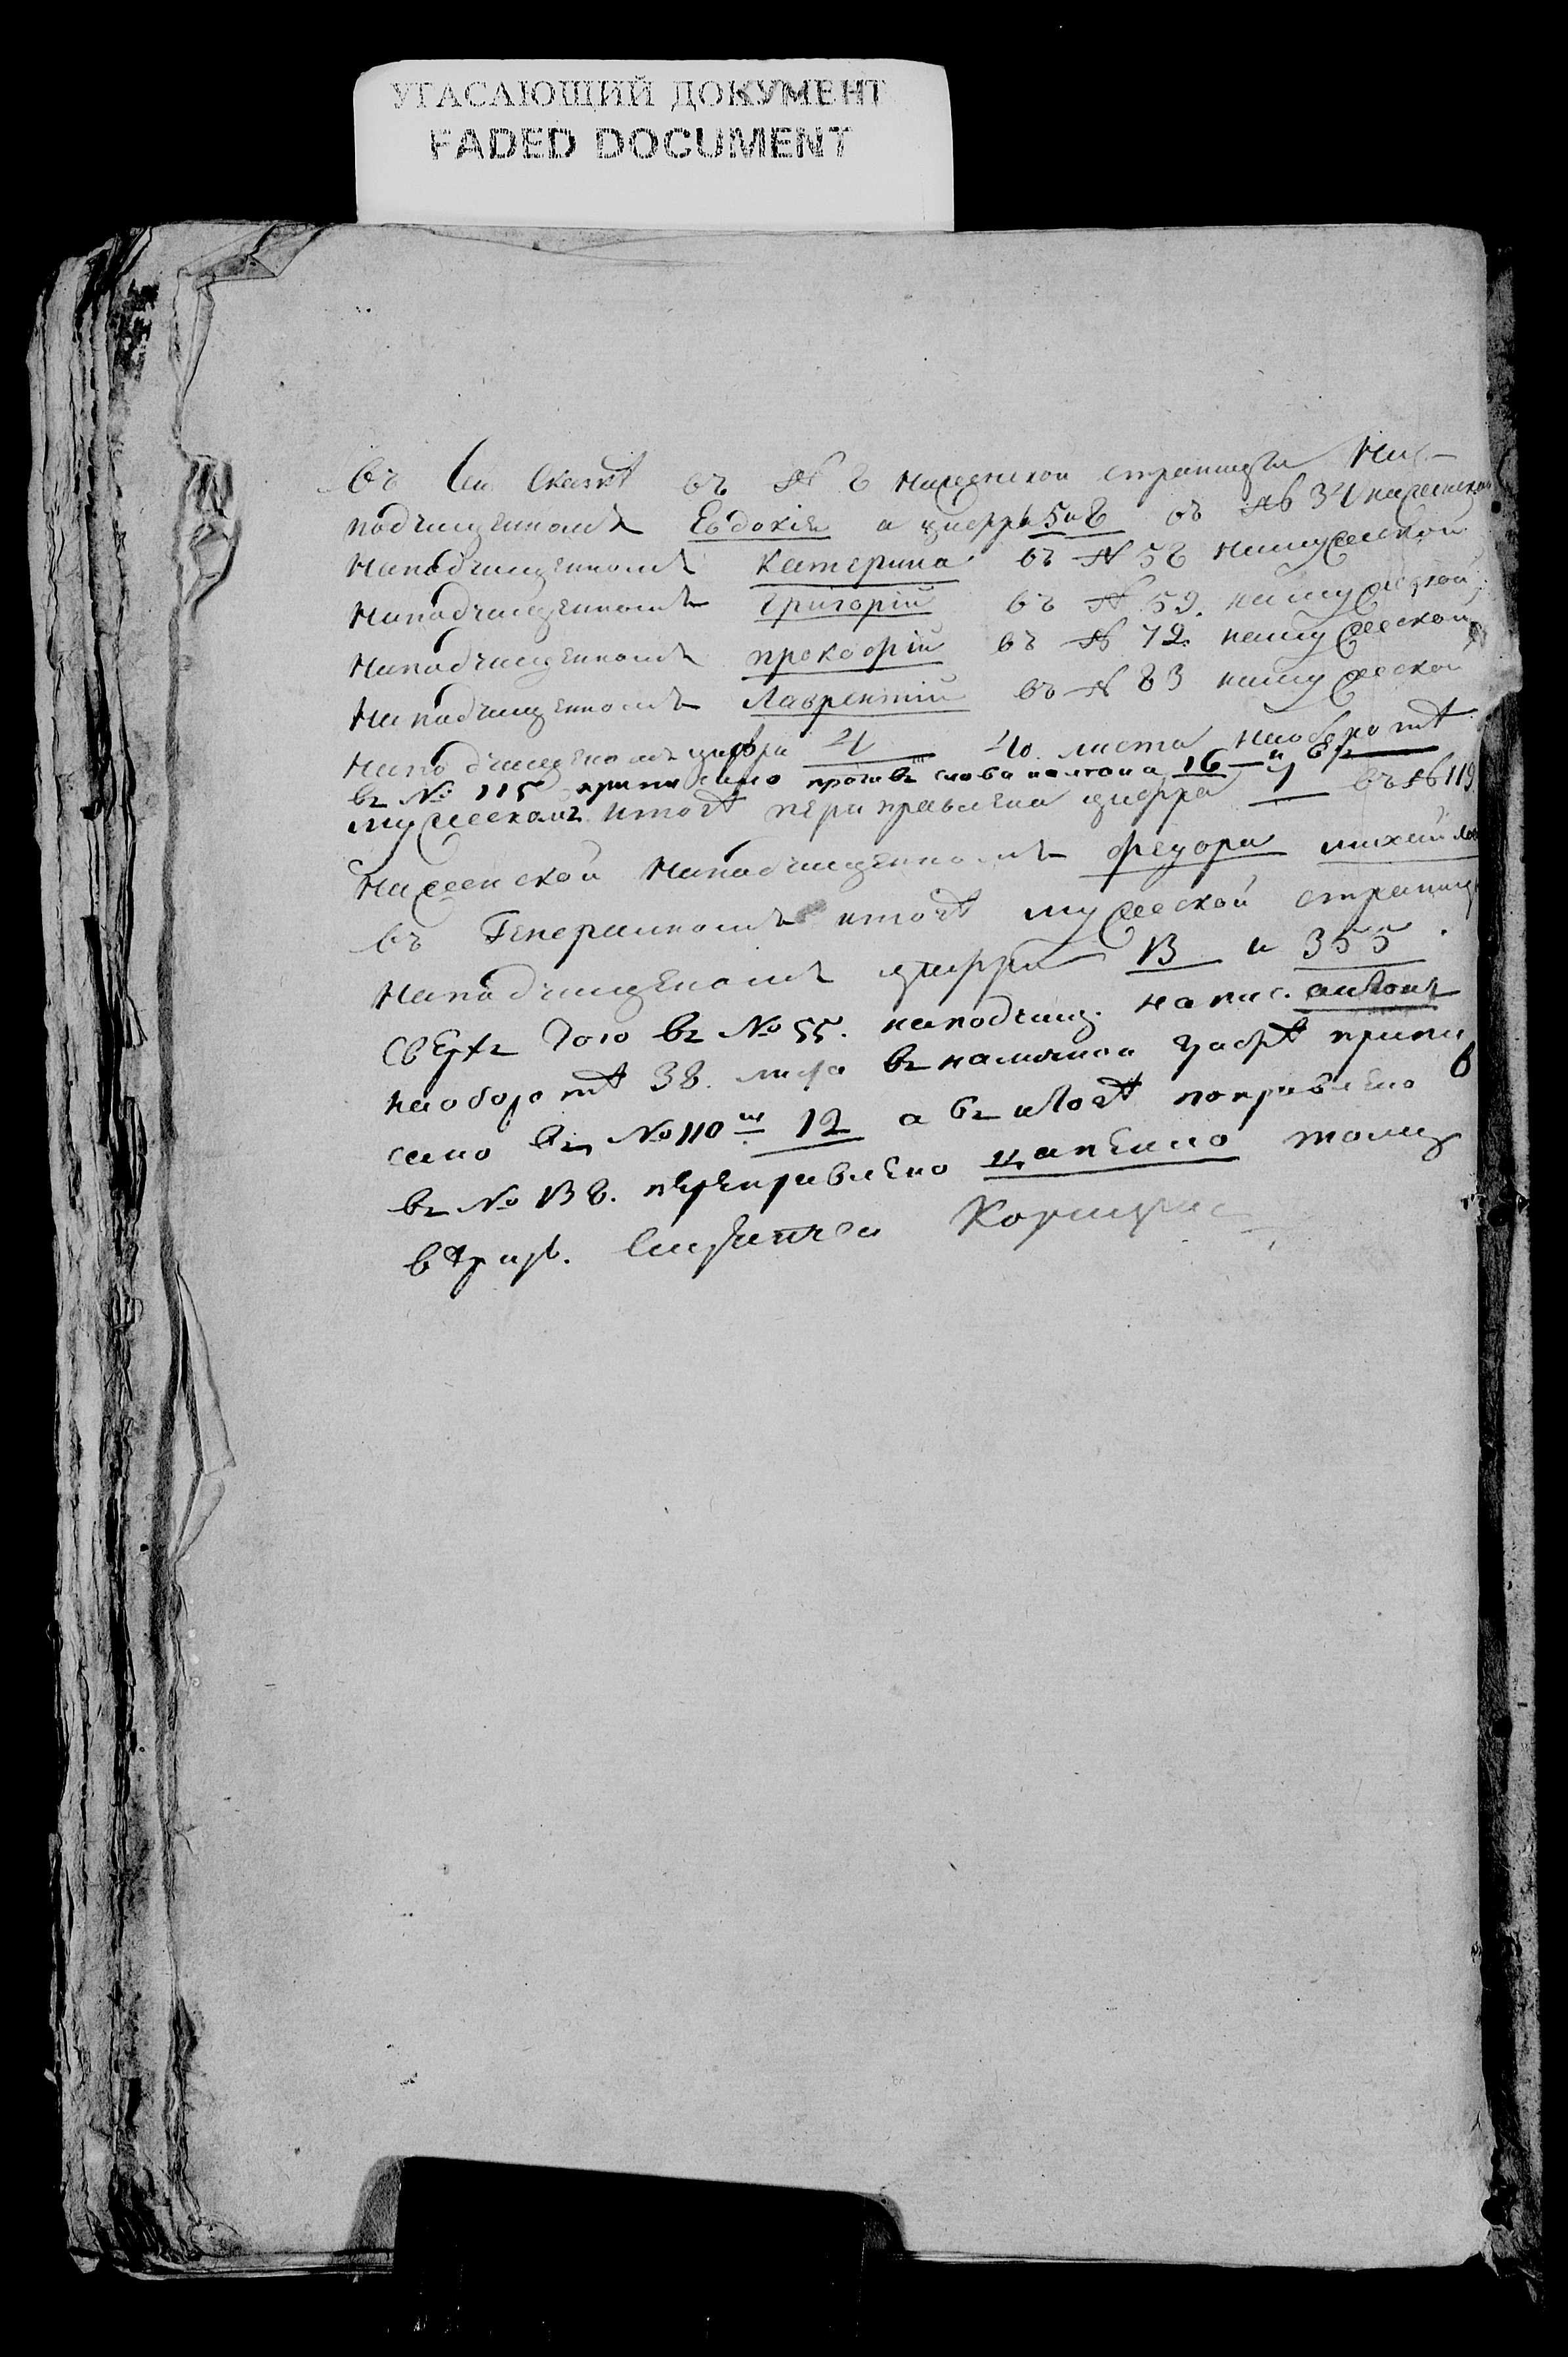 УГАСАЮЩИЙ ДОКУМЕНТ
FADED DOCUMENT
въ сей сказкѣ въ № 8 наженской странице На-
подчищенномъ Евдокіи а цифры 5 и 8 въ № 34 наженской
Наподчищенномъ Катерина въ № 58 намужеской
Наподчищенномъ Григорій въ № 59. намужеской
Наподчищенномъ прокофій въ № 72. намужеской
Наподчищенномъ Лаврентій въ № 83 намужеской
Наподчищеномъ цифра 4 40. листа наоборотѣ
въ № 115 приписано противъ слова 16 и въ
мужескомъ итогѣ переправлена цифра въ № 119
Наженской Наподчищенномъ федора михайлов
въ Генеральномъ итогѣ мужеской страницы
Наподчищеномъ цифры 13 и 355.
Сверхъ того въ № 55. наподчищ. напис. антонъ
наоборотѣ 38. листа въ цифрѣ припи
сано въ № 110м 12 а въ итогѣ поправлено 8
въ № 138. переправлено тому
вѣрит.